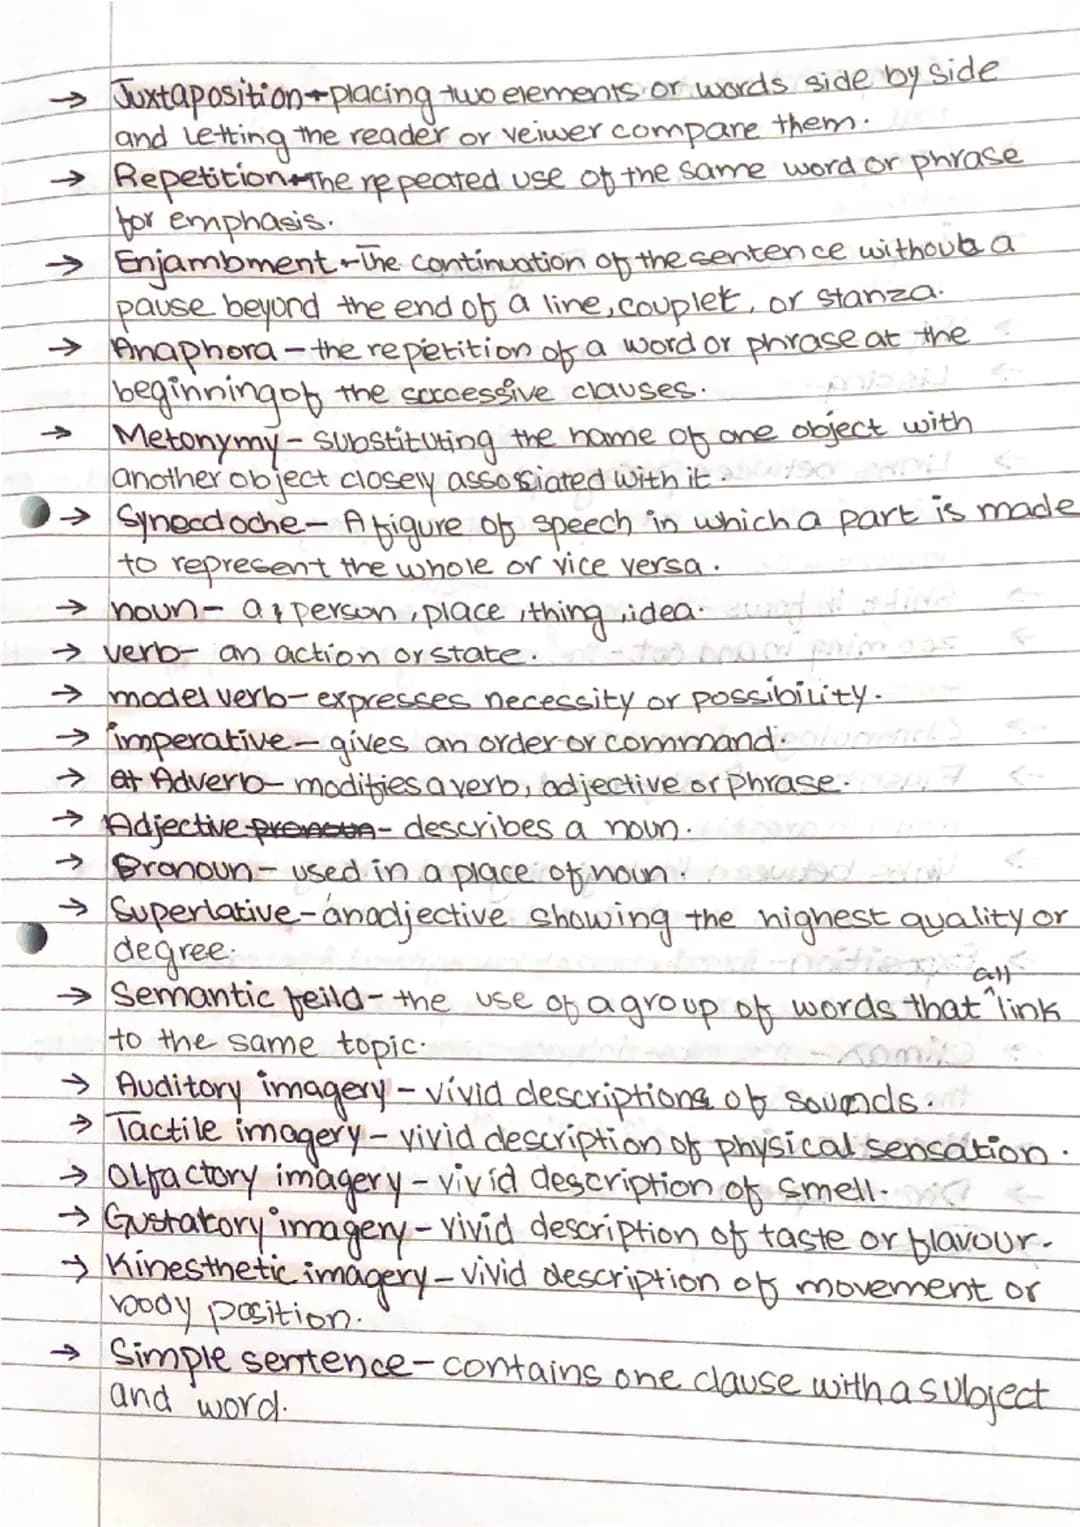 → Juxtaposition - placing two elements or words side by side
and Letting the reader or veiwer compare them.
→ Repetition - The repeated use of the same word or phrase
for emphasis.
→ Enjambment - The continuation of the sentence without a
pause beyond the end of a line, couplet, or stanza.
→ Anaphora - the repietition of a word or phrase at the
beginning of the soccessive clauses.
→ Metonymy - substituting the name of one object with
another object closely assosiated with it.
→ Synecdoche - A figure of speech in which a part is made
to represent the whole or vice versa.
→ noun - a person, place, thing, idea.
→ verb - an action or state.
→ model verb - expresses necessity or possibility.
→ imperative - gives an order or command.
→ Adverb - modifies a verb, adjective or phrase.
→ Adjective pronoun - describes a noun.
→ Pronoun - used in a place of noun.
→ Superlative - an adjective showing the highest quality or
degree.
→ Semantic feild - the use of a group of words that all link
to the same topic.
→ Auditory imagery - vivid descriptions of sounds.
→ Tactile imagery - vivid description of physical sensation.
→ Olfactory imagery - vivid description of smell.
→ Gustatory imagery - vivid description of taste or flavour.
→ Kinesthetic imagery - vivid description of movement or
body position.
→ Simple sentence - contains one clause with a subject
and word.